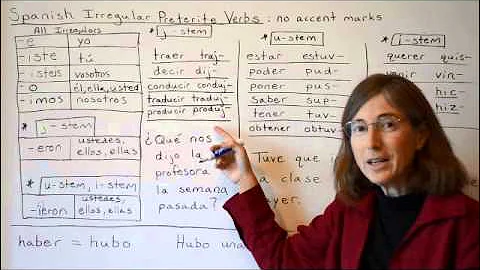 Spanish Irregular Preterite Verbs: no accent marks
All Irregulars
-e yo
-iste tú
-isteis vosotros
-o él, ella, usted
-imos nosotros
* j-stem
-eron ustedes, ellos, ellas
* u-stem, i-stem
-ieron ustedes, ellos, ellas
haber = hubo
* j-stem
traer traj-
decir dij-
conducir conduj-
traducir traduj-
producir produj-
¿Qué nos
dijo la
profesora
la semana
pasada?
* u-stem
estar estuv-
poder pud-
poner pus-
saber sup-
tener tuv-
obtener obtuv-
Tuve que
a clase
ayer.
Hubo una
* i-stem
querer quis-
venir vin-
hic-
hiz-